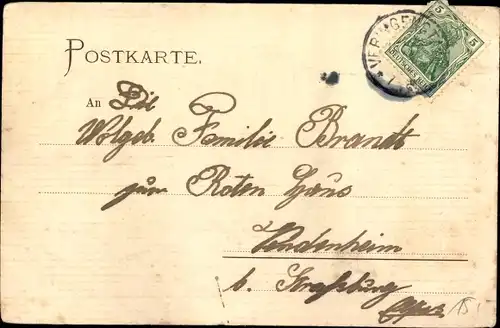 POSTKARTE.
An Die
Wolgeb. Familie Brandt
zum Roten Haus
Vendenheim
b. Straßburg
Elsass
5 5
DEUTSCHES REICH
VERINGEN